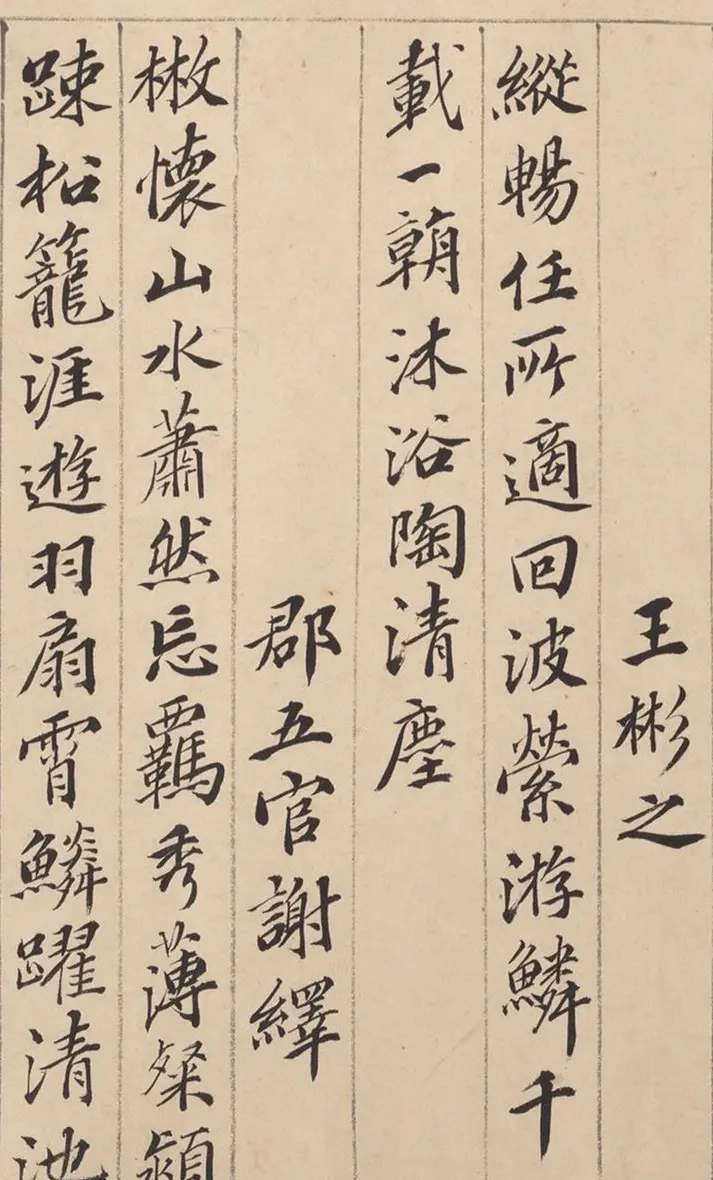 王彬之
縱暢任所適回波縈游鱗千
載一朝沐浴陶清塵
郡五官謝繹
散懷山水蕭然忘羈秀薄粲穎
踈松籠涯遊羽扇霄鱗躍清池